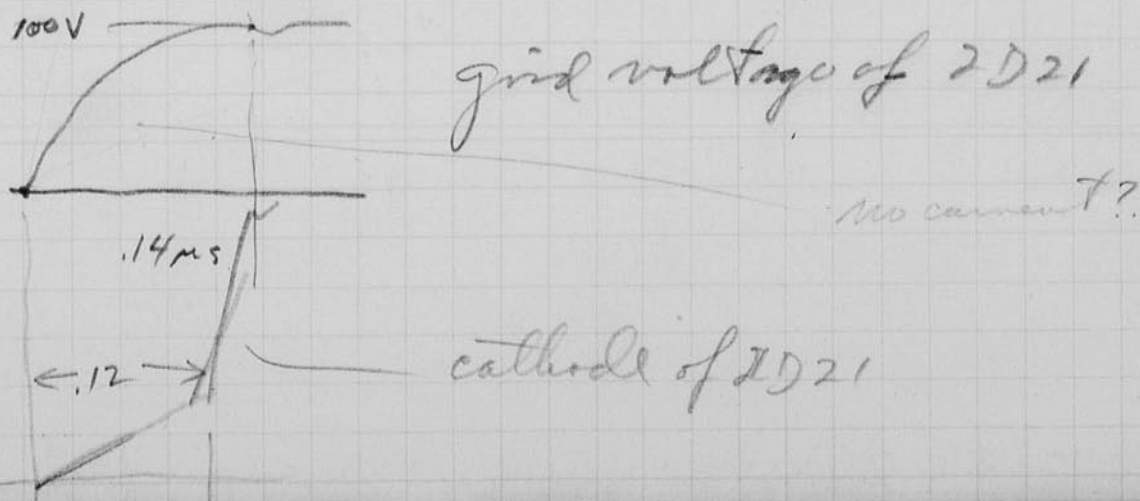 100V
grid voltage of 2D21
no current?
.14μs
.12
cathode of 2D21